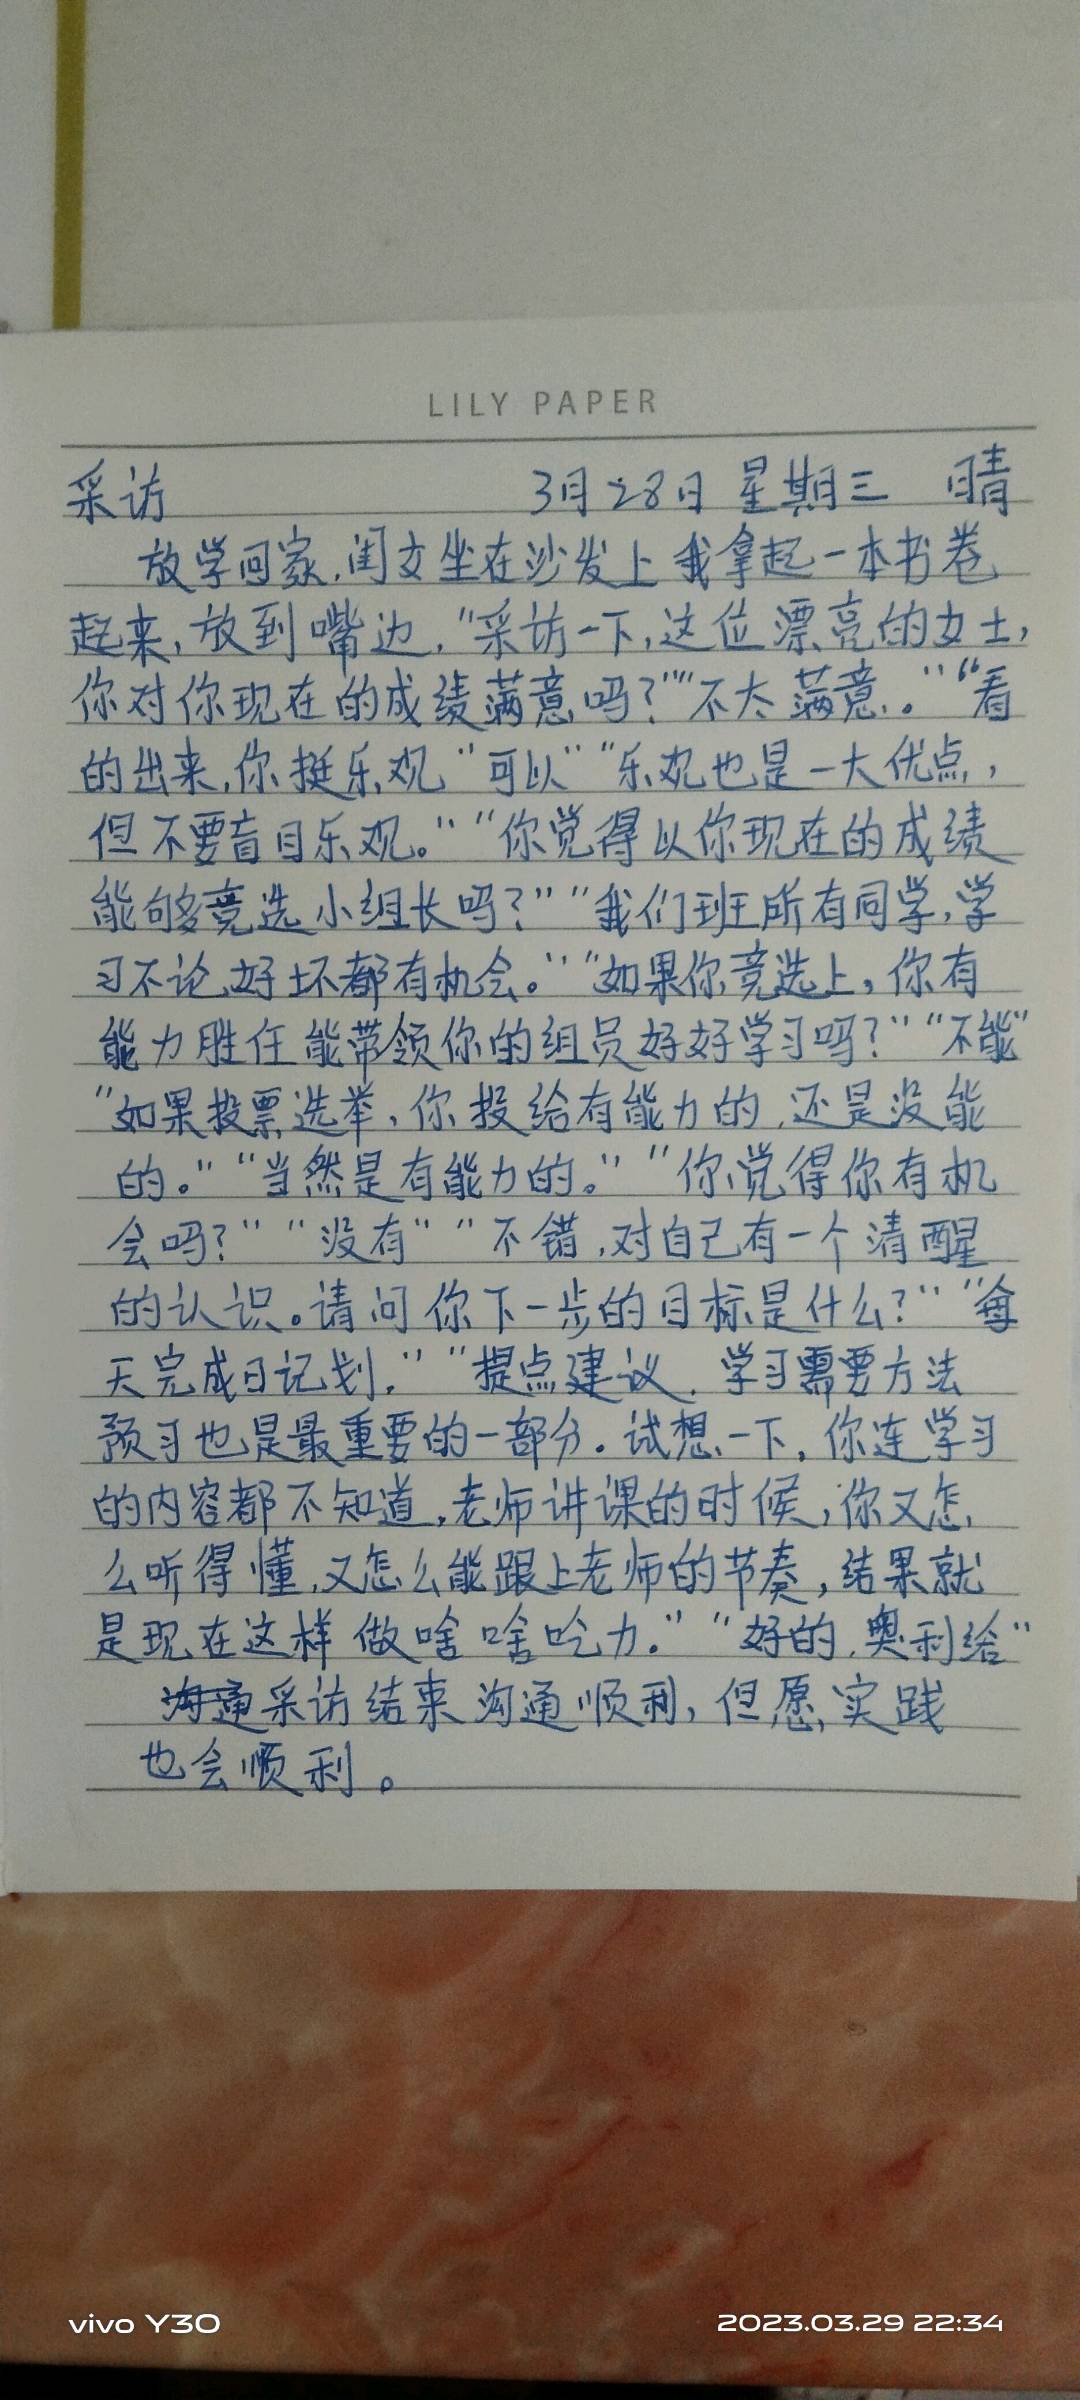 LILY PAPER
采访 3月28日 星期三 晴
放学回家,闺女坐在沙发上 我拿起一本书卷
起来,放到嘴边,“采访一下,这位漂亮的女士,
你对你现在的成绩满意吗?”“不太满意。”“看
的出来,你挺乐观”“可以”“乐观也是一大优点,
但不要盲目乐观。”“你觉得以你现在的成绩
能够竞选小组长吗?”“我们班所有同学,学
习不论好坏都有机会。”“如果你竞选上,你有
能力胜任能带领你的组员好好学习吗?”“不能”
“如果投票选举,你投给有能力的,还是没能
的。”“当然是有能力的。”“你觉得你有机
会吗?”“没有”“不错,对自己有一个清醒
的认识。请问你下一步的目标是什么?”“每
天完成日记划,”“提点建议,学习需要方法
预习也是最重要的一部分。试想一下,你连学习
的内容都不知道,老师讲课的时候,你又怎
么听得懂,又怎么能跟上老师的节奏,结果就
是现在这样做啥啥吃力。”“好的,奥利给”
沟通采访结束 沟通顺利,但愿实践
也会顺利。
vivo Y30
2023.03.29 22:34